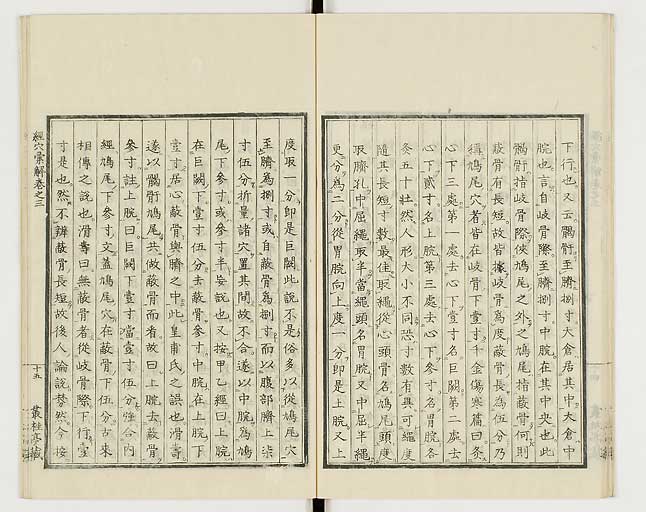 下行也又云𩩲骬至臍捌寸大倉居其中大倉中
脘也言自岐骨際至臍捌寸中脘在其中央也此
𩩲骬指岐骨際俠鳩尾之外之鳩尾指蔽骨何則
蔽骨有長短故皆據岐骨為度蔽骨長為伍分乃
稱鳩尾穴者皆在岐骨下壹寸千金傷寒篇曰灸
心下三處第一處去心下壹寸名巨闕第二處去
心下貳寸名上脘第三處去心下參寸名胃脘各
灸五十壯然人形大小不同恐寸數有異可繩度
隨其長短寸數最佳取繩從心頭骨名鳩尾頭度
取臍孔中屈繩取半當繩頭名胃脘又中屈半繩
更分為二分從胃脘向上度一分即是上脘又上
度取一分即是巨闕此說不是俗多以從鳩尾穴
至臍為捌寸或自蔽骨為捌寸而以腹部臍上柒
寸伍分折量諸穴置其間故不合遂以中脘為鳩
尾下參寸或參寸半妄說也又按甲乙經曰上脘
在巨闕下壹寸伍分去蔽骨參寸中脘在上脘下
壹寸居心蔽骨與臍之中此皇甫氏之誤也滑壽
遂以𩩲骬鳩尾共做蔽骨而看故曰上脘去蔽骨
參寸註上脘曰巨闕下壹寸當壹寸伍分強合內
經鳩尾下參寸文蓋鳩尾穴在蔽骨下伍分古來
相傳之說也滑壽曰無蔽骨者從岐骨際下行壹
寸是也然不辨蔽骨長短故後人論說棼然今按
經穴彙解卷之三
十五
叢桂亭藏